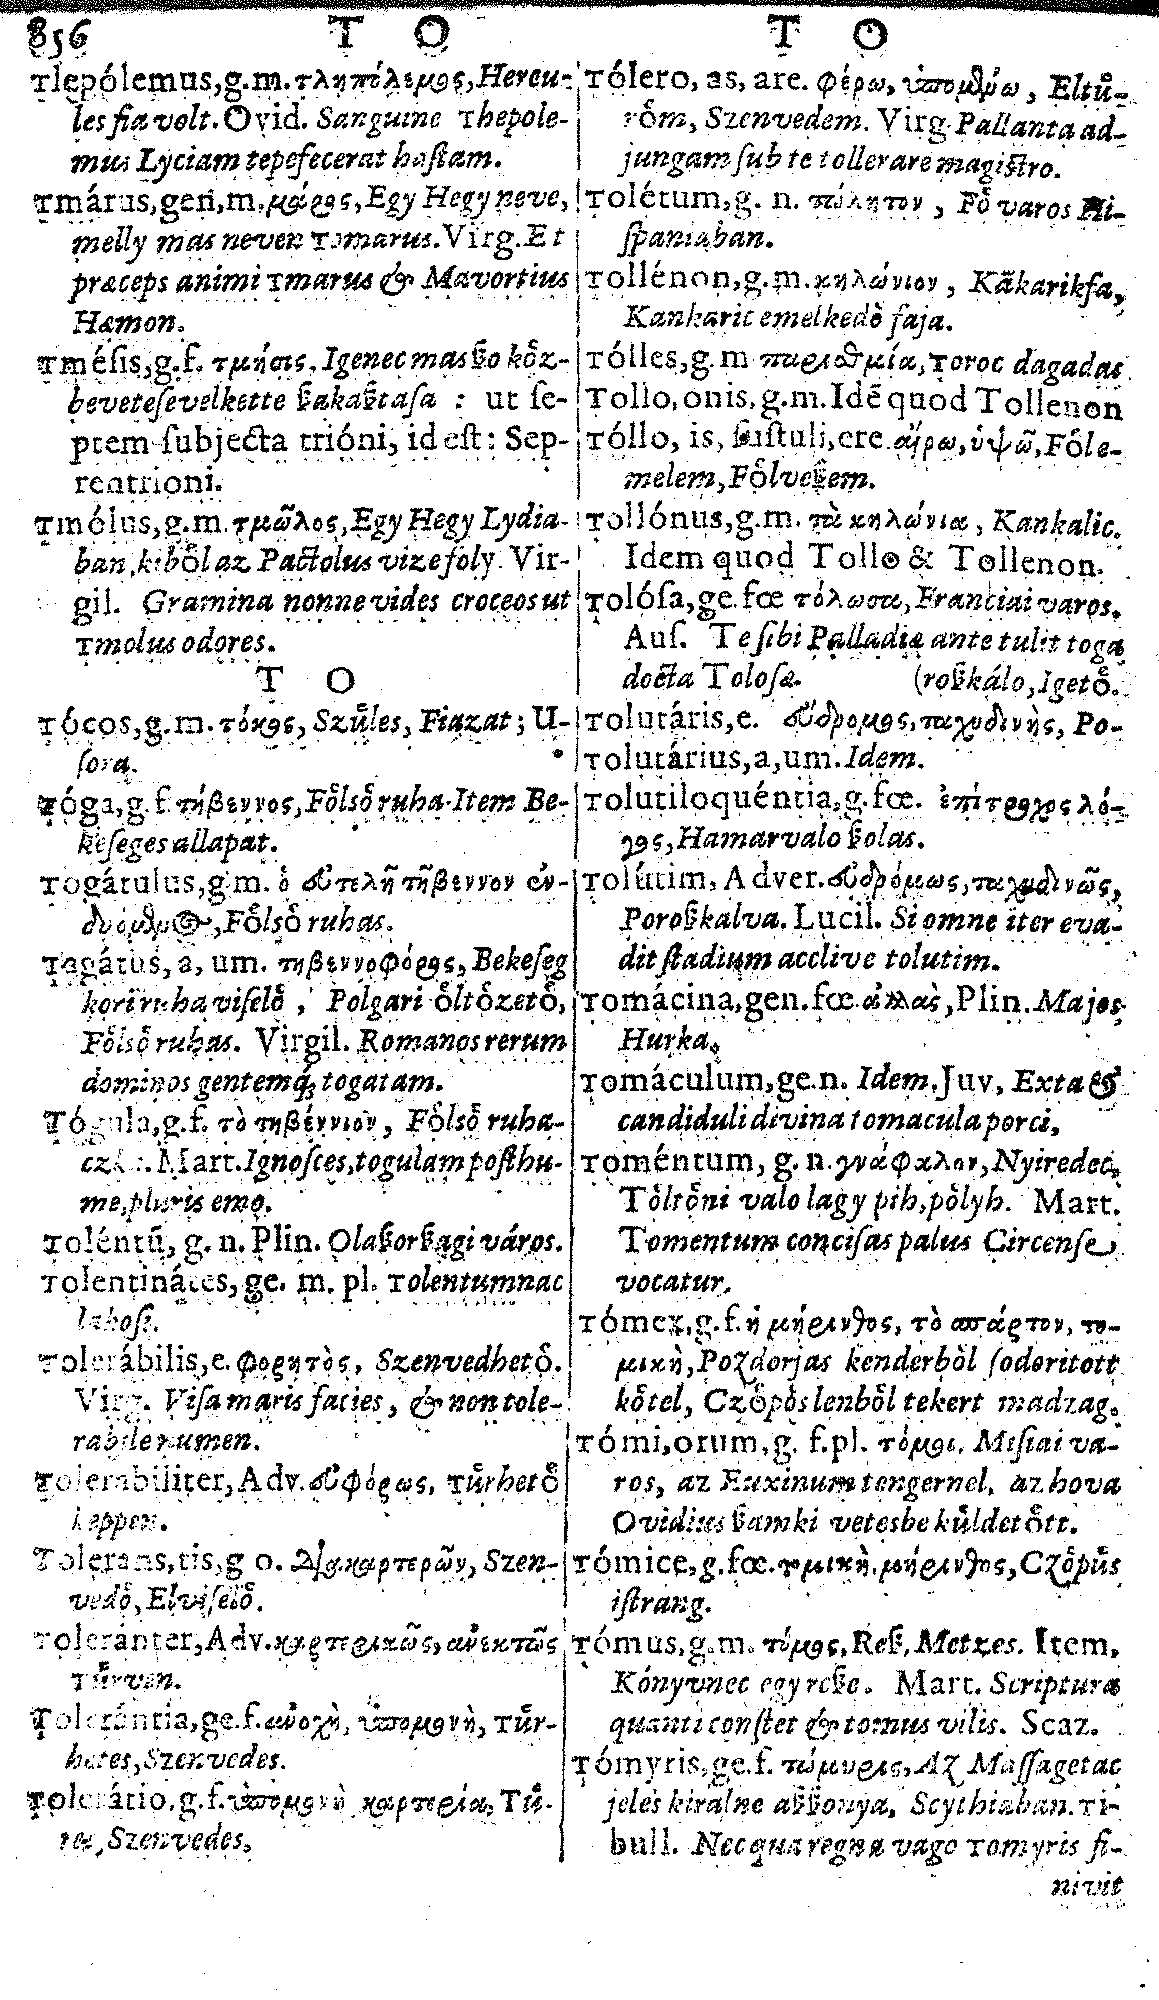 856 T O T O
Tlepólemus, g.m. τληπόλεμος, Hercu-
les fia volt. Ovid. Sanguine Thepole-
mus Lyciam tepefecerat hastam.
Tmárus, gen, m. μάρος, Egy Hegy neve,
melly mas neven Tomarus. Virg. Et
præceps animi Tmarus & Mavortius
Hæmon.
Tmésis, g.f. τμήσις, Igenec mas ßo kőz-
beveteſevelkette ßakaßtaſa : ut ſe-
ptem ſubjecta trióni, id eſt: Sep-
tentrioni.
Tmólus, g.m. τμῶλος, Egy Hegy Lydia-
ban, kiből az Pactolus vize foly. Vir-
gil. Gramina nonne vides croceos ut
Tmolus odores.
T O
Tócos, g.m. τόκος, Szűles, Fiazat; U-
ſora.
Tóga, g.f. τήβεννος, Főlső ruha. Item Be-
keſeges allapat.
Togátulus, g.m. ὁ εὐτελῆ τῆβεννον ἐν-
Főlső ruhas.
Togátus, a, um. τηβεννοφόρος, Bekeſeg
kori ruha viſelő, Polgari őltőzető,
Főlső ruhas. Virgil. Romanos rerum
dominos gentemq; togatam.
Tógula, g.f. τὸ τηβέννιον, Főlső ruha-
Mart. Ignoſces, togulam poſthu-
me, pluris emo.
Toléntū, g. n. Plin. Olaßorßagi város.
Tolentinátes, ge. m. pl. Tolentumnac
lakoſi.
Tolerábilis, e. φορητὸς, Szenvedhető.
Virg. Viſa maris facies, & non tole-
rabile numen.
Tolerabiliter, Adv. εὐφόρως, Tűrhető
keppen.
Tolerans, tis, g o. Διακαρτερῶν, Szen-
vedő, Elviſelő.
Toleránter, Adv. καρτερικῶς, ανεκτῶς
Tűrven.
Tolerántia, ge.f. ανοχὴ, ὑπομονὴ, Tűr-
hetes, Szenvedes.
Tolerátio, g.f. ὑπομονὴ καρτερία, Tű-
res, Szenvedes.
Tólero, as, are. φέρω, ὑπομένω, Eltű-
rőm, Szenvedem. Virg. Pallanta ad-
jungam ſub te tollerare magiſtro.
Tolétum, g. n. τόλητον, Fő varos Hi-
ſpaniaban.
Tollénon, g.m. κηλώνιον, Kākarikfa,
Kankaric emelkedő faja.
Tólles, g.m παρισθμία, Toroc dagadas
Tollo, onis, g.m. Idē quod Tollenon
Tóllo, is, ſuſtuli, ere. αἴρω, ὑψῶ, Főle-
melem, Főlveßem.
Tollónus, g.m. τὰ κηλώνια, Kankalic.
Idem quod Tollo & Tollenon.
Tolóſa, ge. fœ τόλωσα, Franciai varos.
Auſ. Te ſibi Palladiæ ante tulit toga
docta Toloſæ. (roßkálo, Igető.
Tolutáris, e. εὔδρομος, ταχυδινὴς, Po-
Tolutárius, a, um. Idem.
Tolutiloquéntia, g. fœ. ἐπίτροχος λό-
γος, Hamarvalo ßolas.
Tolútim, Adver. εὐδρόμως, ταχυδινῶς,
Poroßkalva. Lucil. Si omne iter eva-
dit ſtadium acclive tolutim.
Tomácina, gen. fœ. ἀλλας, Plin. Majos
Hurka.
Tomáculum, ge. n. Idem. Juv, Exta &
candiduli divina tomacula porci,
Toméntum, g. n. γνάφαλον, Nyiredec,
Tőltőni valo lagy pih, pőlyh. Mart.
Tomentum conciſas palus Circenſe
vocatur.
Tómex, g.f. ἡ μήρινθος, τὸ σπάρτον, το-
μικὴ, Pozdorjas kenderből ſodoritott
kőtel, Czőpős lenből tekert madzag.
Tómi, orum, g. f. pl. τόμοι. Miſiai va-
ros, az Euxinum tengernel, az hova
Ovidius ßamki vetesbe kűldetőtt.
Tómice, g. fœ. τομικὴ. μήρινθος, Czőpűs
iſtrang.
Tómus, g.m. τόμος, Reß, Metzes. Item,
Kónyvnec egy reße. Mart. Scriptura
quanti conſtet & tomus vilis. Scaz.
Tómyris, ge. f. τόμυρις, Az Maſſagetac
jeles kiralne aßßonya, Scythiaban. Ti-
bull. Nec qua regna vago Tomyris fi-
nivit